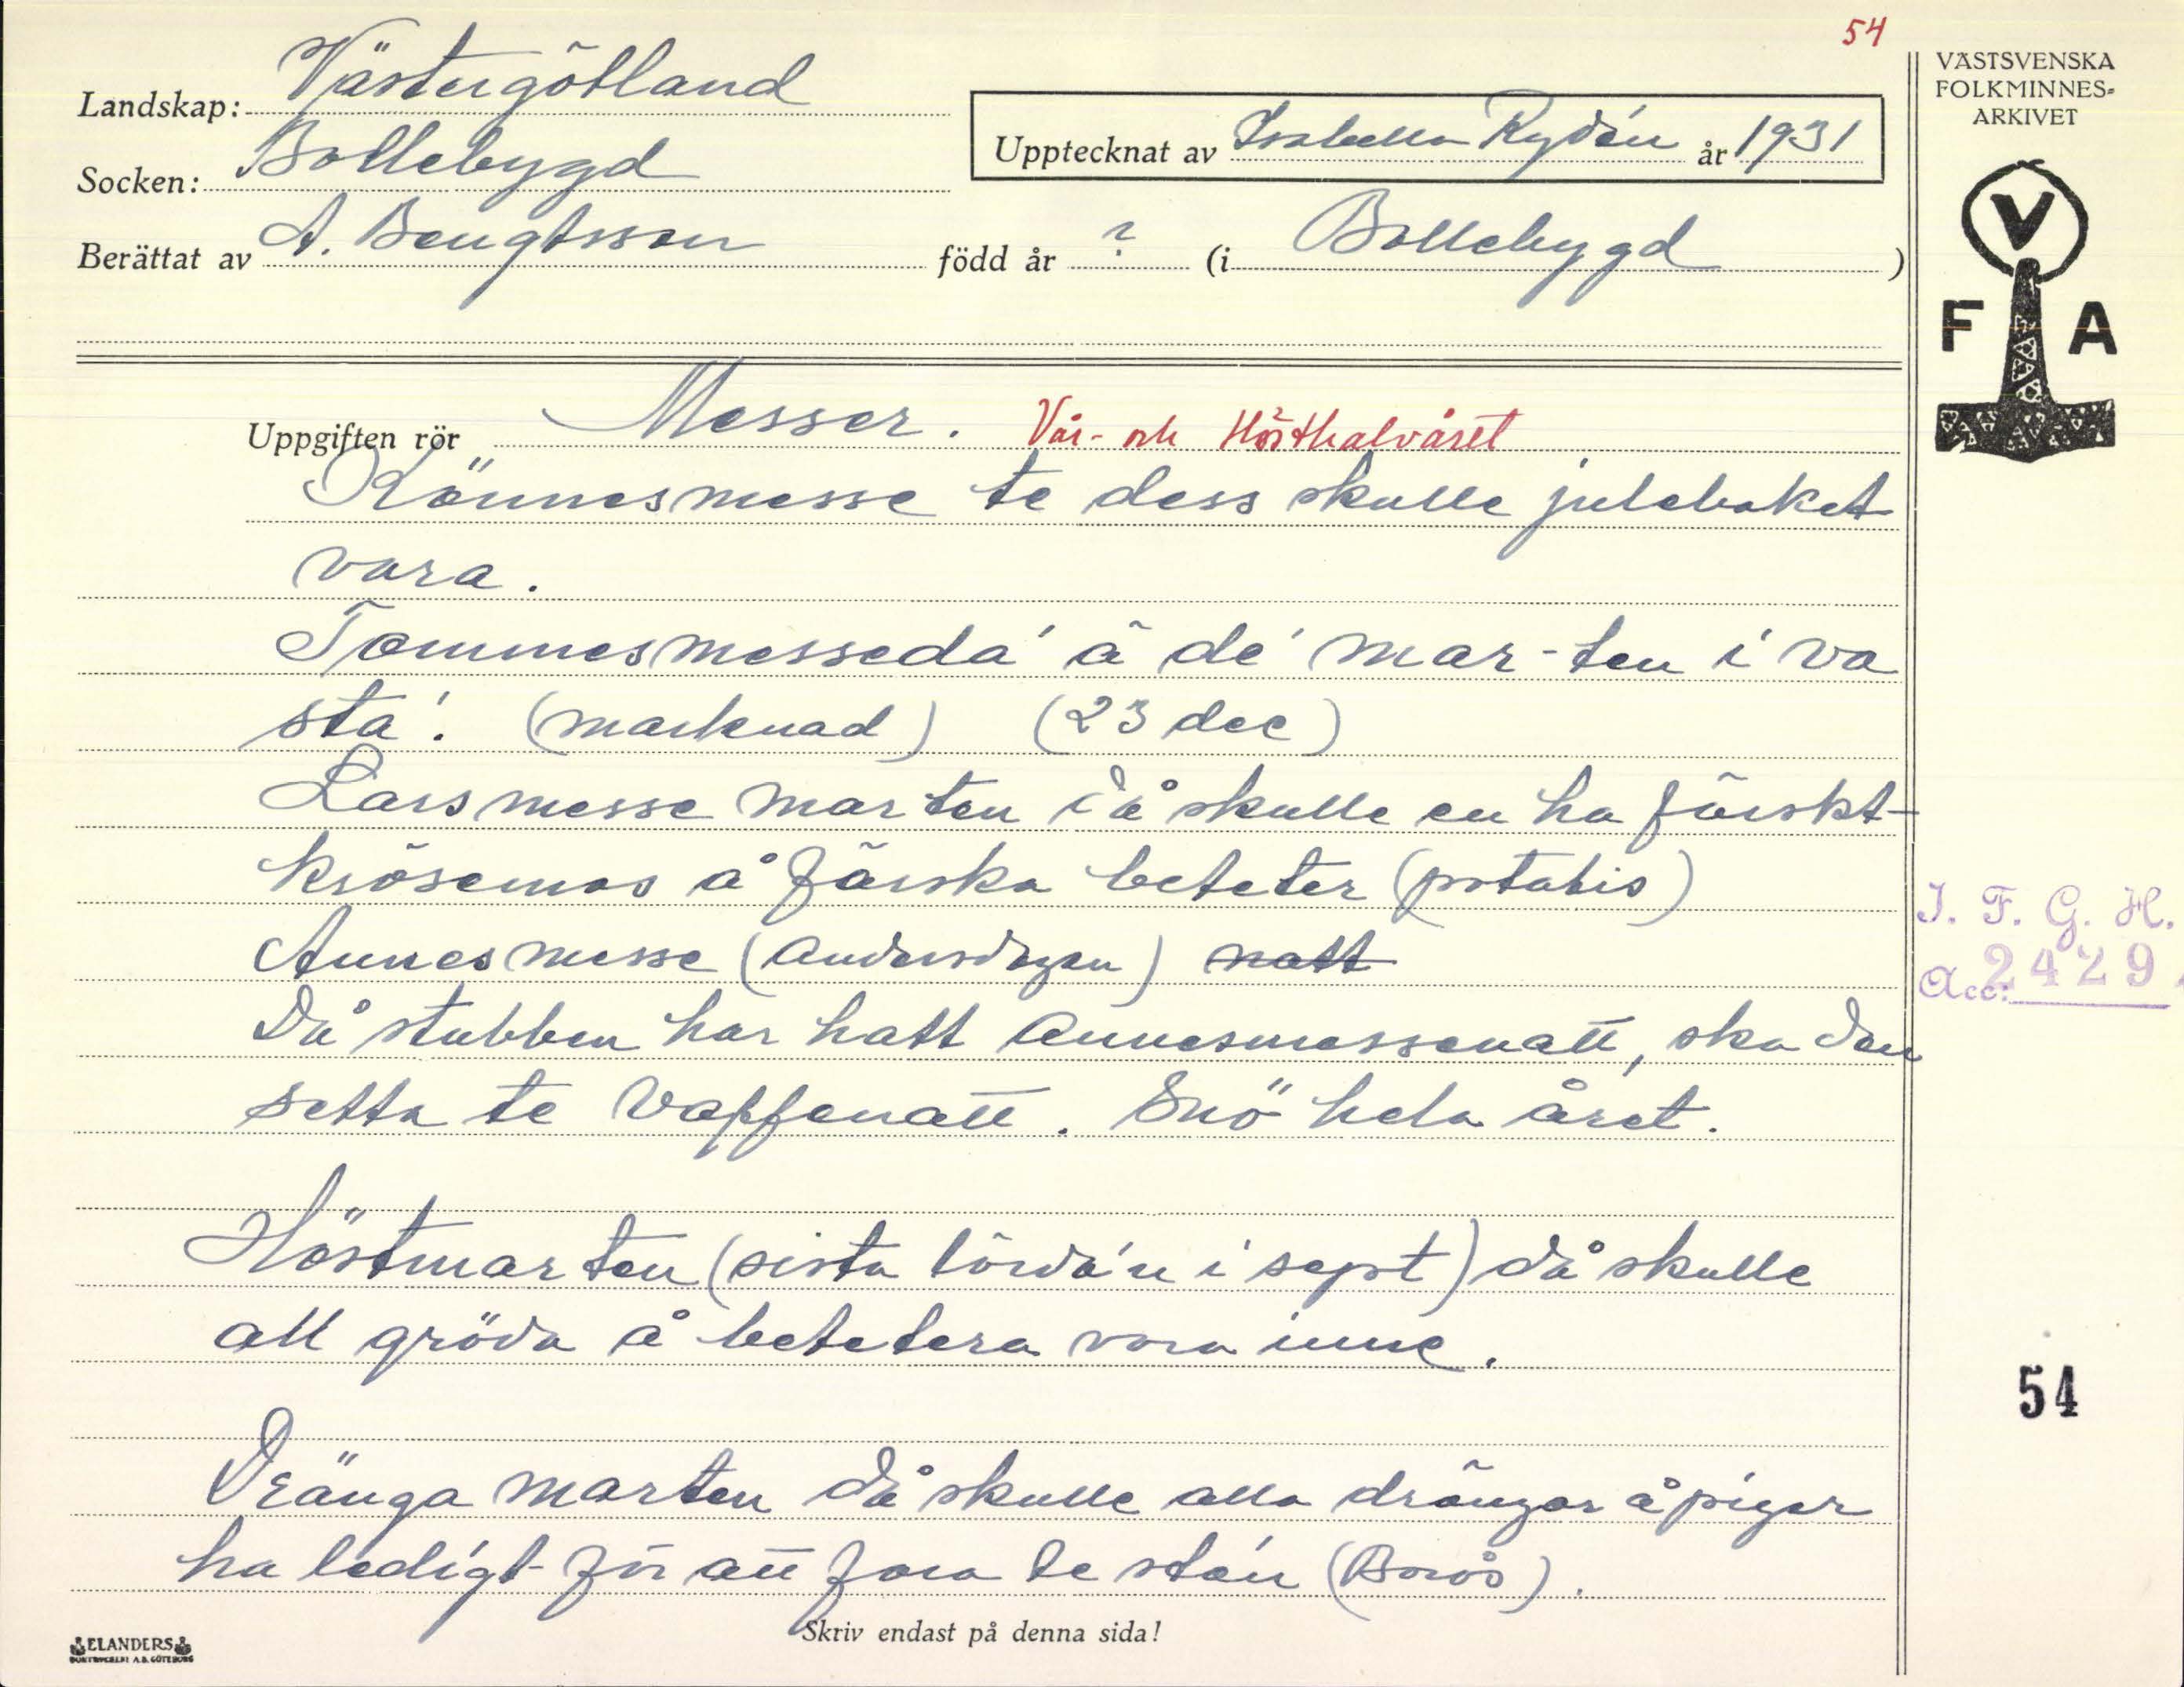 54
VÄSTSVENSKA
FOLKMINNES-
ARKIVET
Landskap: Västergötland
Socken: Bollebygd
Upptecknat av Isabella Rydén år 1931
Berättat av A. Bengtsson född år ? (i Bollebygd)
V
F A
Uppgiften rör Messer. Vår- och Hösthalvåret
Könnesmesse te dess skulle julebaket
vara.
Tommesmesseda' ä de' mar-ten i va
sta'. (marknad) (23 dec)
Larsmesse marten då skulle en ha färskt
krösemos å färska beteter (potatis)
Annesmesse (Andersdagen) natt
Då stubben har hatt Annesmessenatt, ska den
setta te Vaffenatt. Snö hela året.
Höstmarten (sista lörda'n i sept) då skulle
all gröda å betetera vara inne.
Drängamarten då skulle alla drängar å pigor
ha ledigt för att fara te sta'n (Borås).
Skriv endast på denna sida!
J. F. G. H.
Acc: 2429.
54
ELANDERS
BOKTRYCKERI A.B. GÖTEBORG